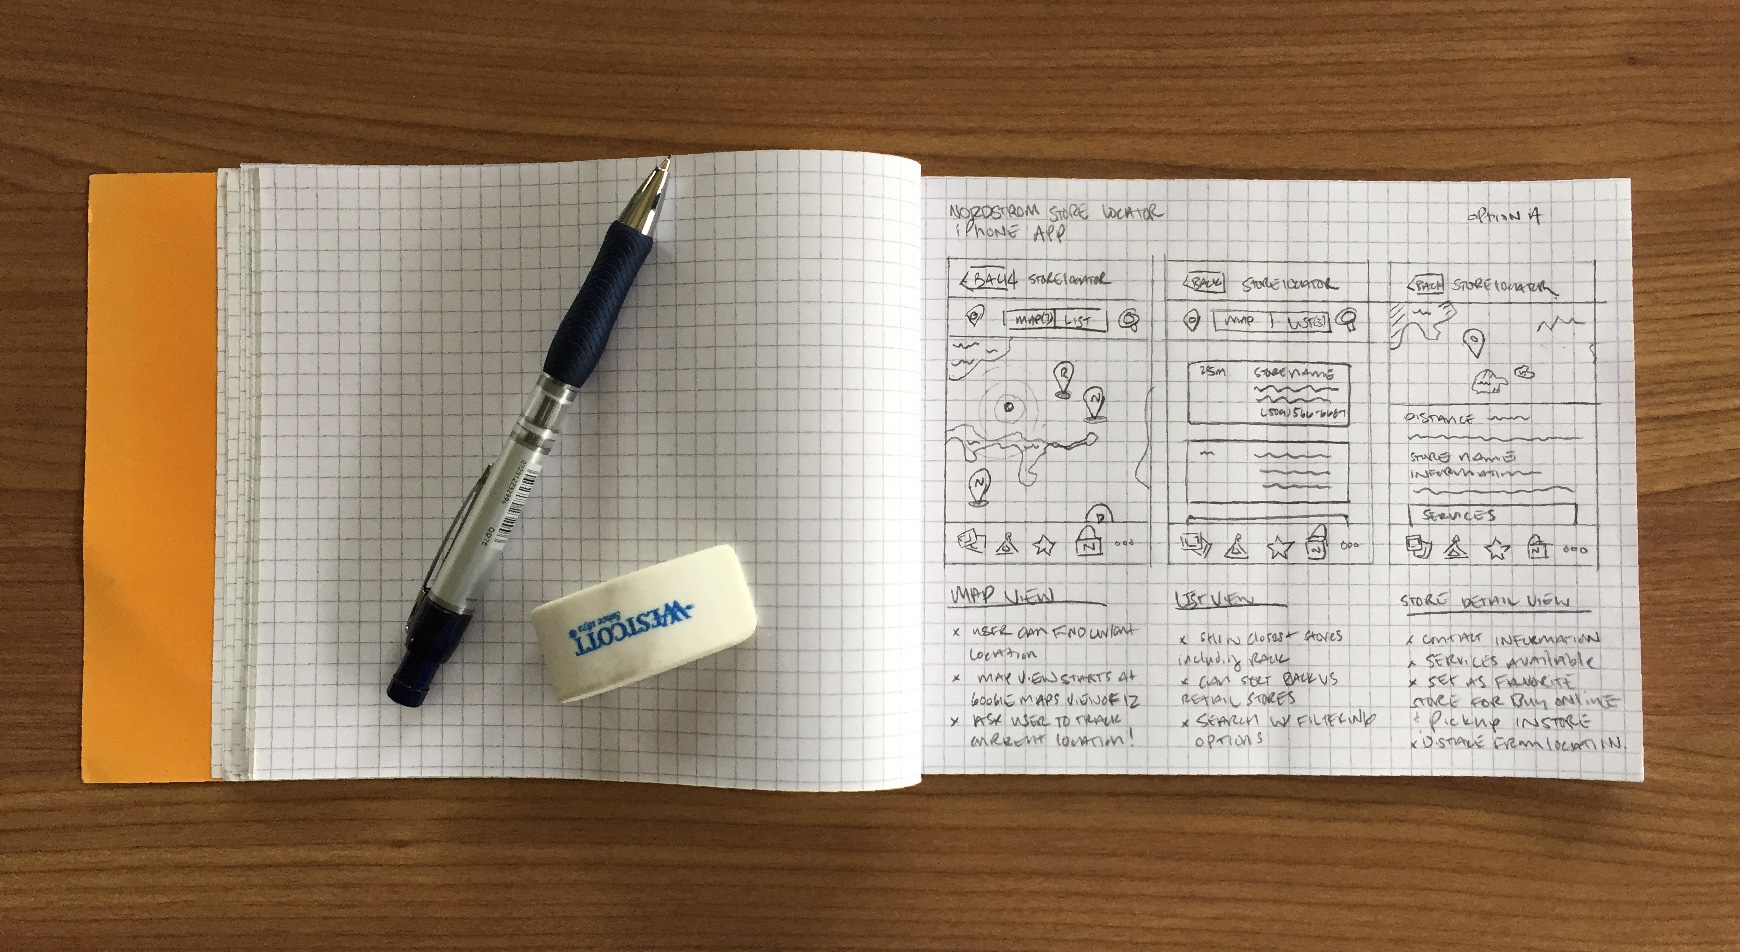 NORDSTROM STORE LOCATOR
iPHONE APP
OPTION A
BACK STORE LOCATOR
MAP LIST
R
N
N
N
BACK STORE LOCATOR
MAP LIST
STORE NAME
N
BACK STORE LOCATOR
DISTANCE
STORE NAME
INFORMATION
SERVICES
N
MAP VIEW
x USER CAN FIND CURRENT
LOCATION
x MAP VIEW STARTS AT
GOOGLE MAPS VIEW OF 12
x ASK USER TO TRACK
CURRENT LOCATION!
LIST VIEW
x STILL IN CLOSEST STORES
including RACK
x CAN SORT RACK VS
RETAIL STORES
x SEARCH W/ FILTERING
OPTIONS
STORE DETAIL VIEW
x CONTACT INFORMATION
x SERVICES AVAILABLE
x SET AS FAVORITE
STORE FOR BUY ONLINE
+ PICKUP IN STORE
x DISTANCE FROM LOCATION.
WESTCOTT
Since 1872